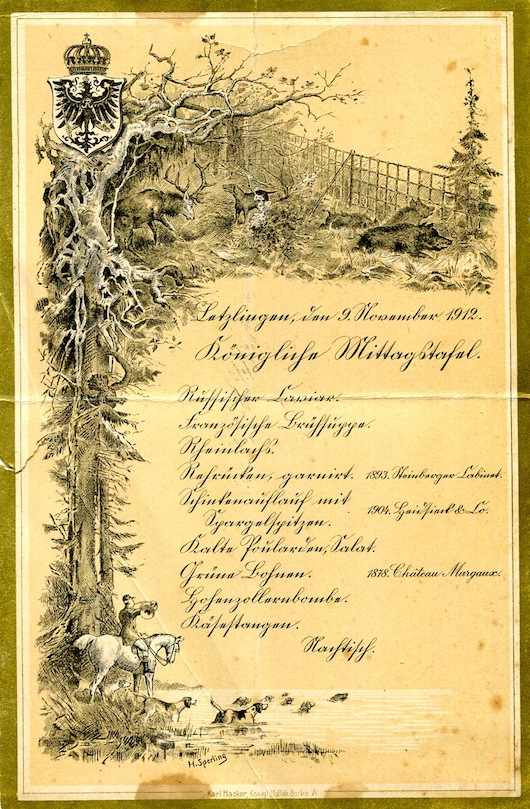 Letzlingen, den 9. November 1912.
Königliche Mittagstafel.
Russischer Caviar.
Französische Brühsuppe.
Rheinlachs.
Rehrücken, garnirt. 1893. Steinberger Cabinet.
Schinkenauflauf mit
Spargelspitzen. 1904. Heidsieck & Co.
Kalte Poularden, Salat.
Grüne Bohnen. 1878. Château Margaux.
Hohenzollernbombe.
Käsestangen.
Nachtisch.
H. Sperling
Karl Hacker, Königl. Hoflief. Berlin W.